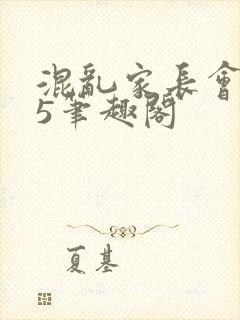 混亂家長會
5筆趣閣
夏基